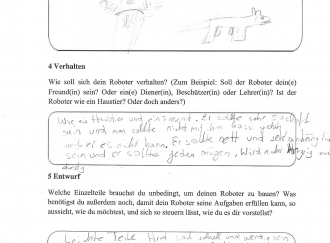 4 Verhalten
Wie soll sich dein Roboter verhalten? (Zum Beispiel: Soll der Roboter dein(e)
Freund(in) sein? Oder ein(e) Diener(in), Beschützer(in) oder Lehrer(in)? Ist der
Roboter wie ein Haustier? Oder doch anders?)
Wie ein Haustier und ein Freund. Er sollte sehr
sein und man sollte nicht mit ihm
weil er es nicht kann. Er sollte nett und sehr
sein und er sollte jeden mögen. Wird nicht
5 Entwurf
Welche Einzelteile brauchst du unbedingt, um deinen Roboter zu bauen? Was
benötigst du außerdem noch, damit dein Roboter seine Aufgaben erfüllen kann, so
aussieht, wie du möchtest, und sich so steuern lässt, wie du es dir vorstellst?
Leichte Teile und schnell und wenig